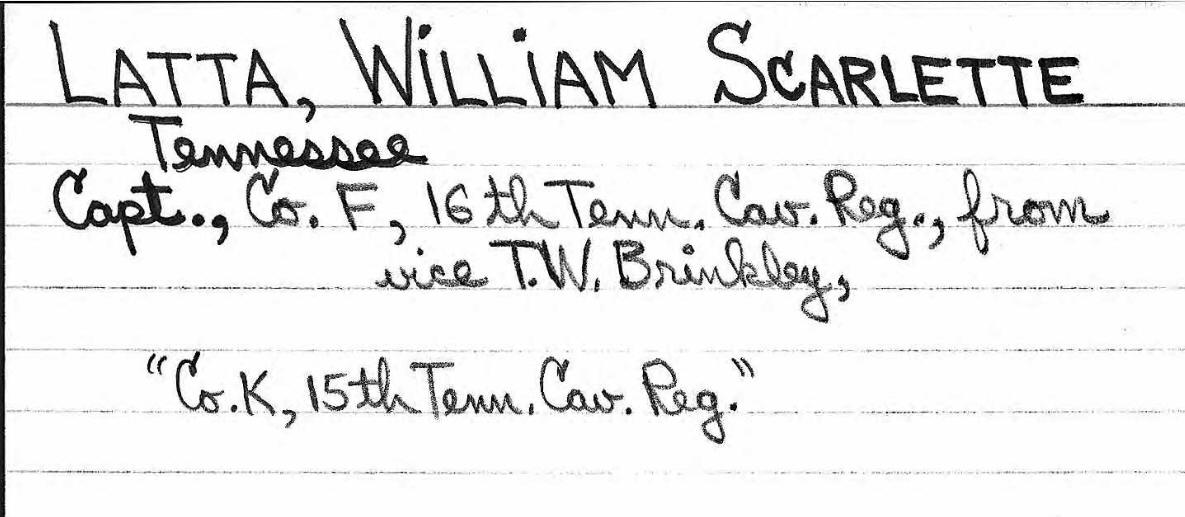 LATTA, WILLIAM SCARLETTE
Tennessee
Capt., Co. F, 16th Tenn. Cav. Reg., from
vice T.W. Brinkley,
"Co. K, 15th Tenn. Cav. Reg."